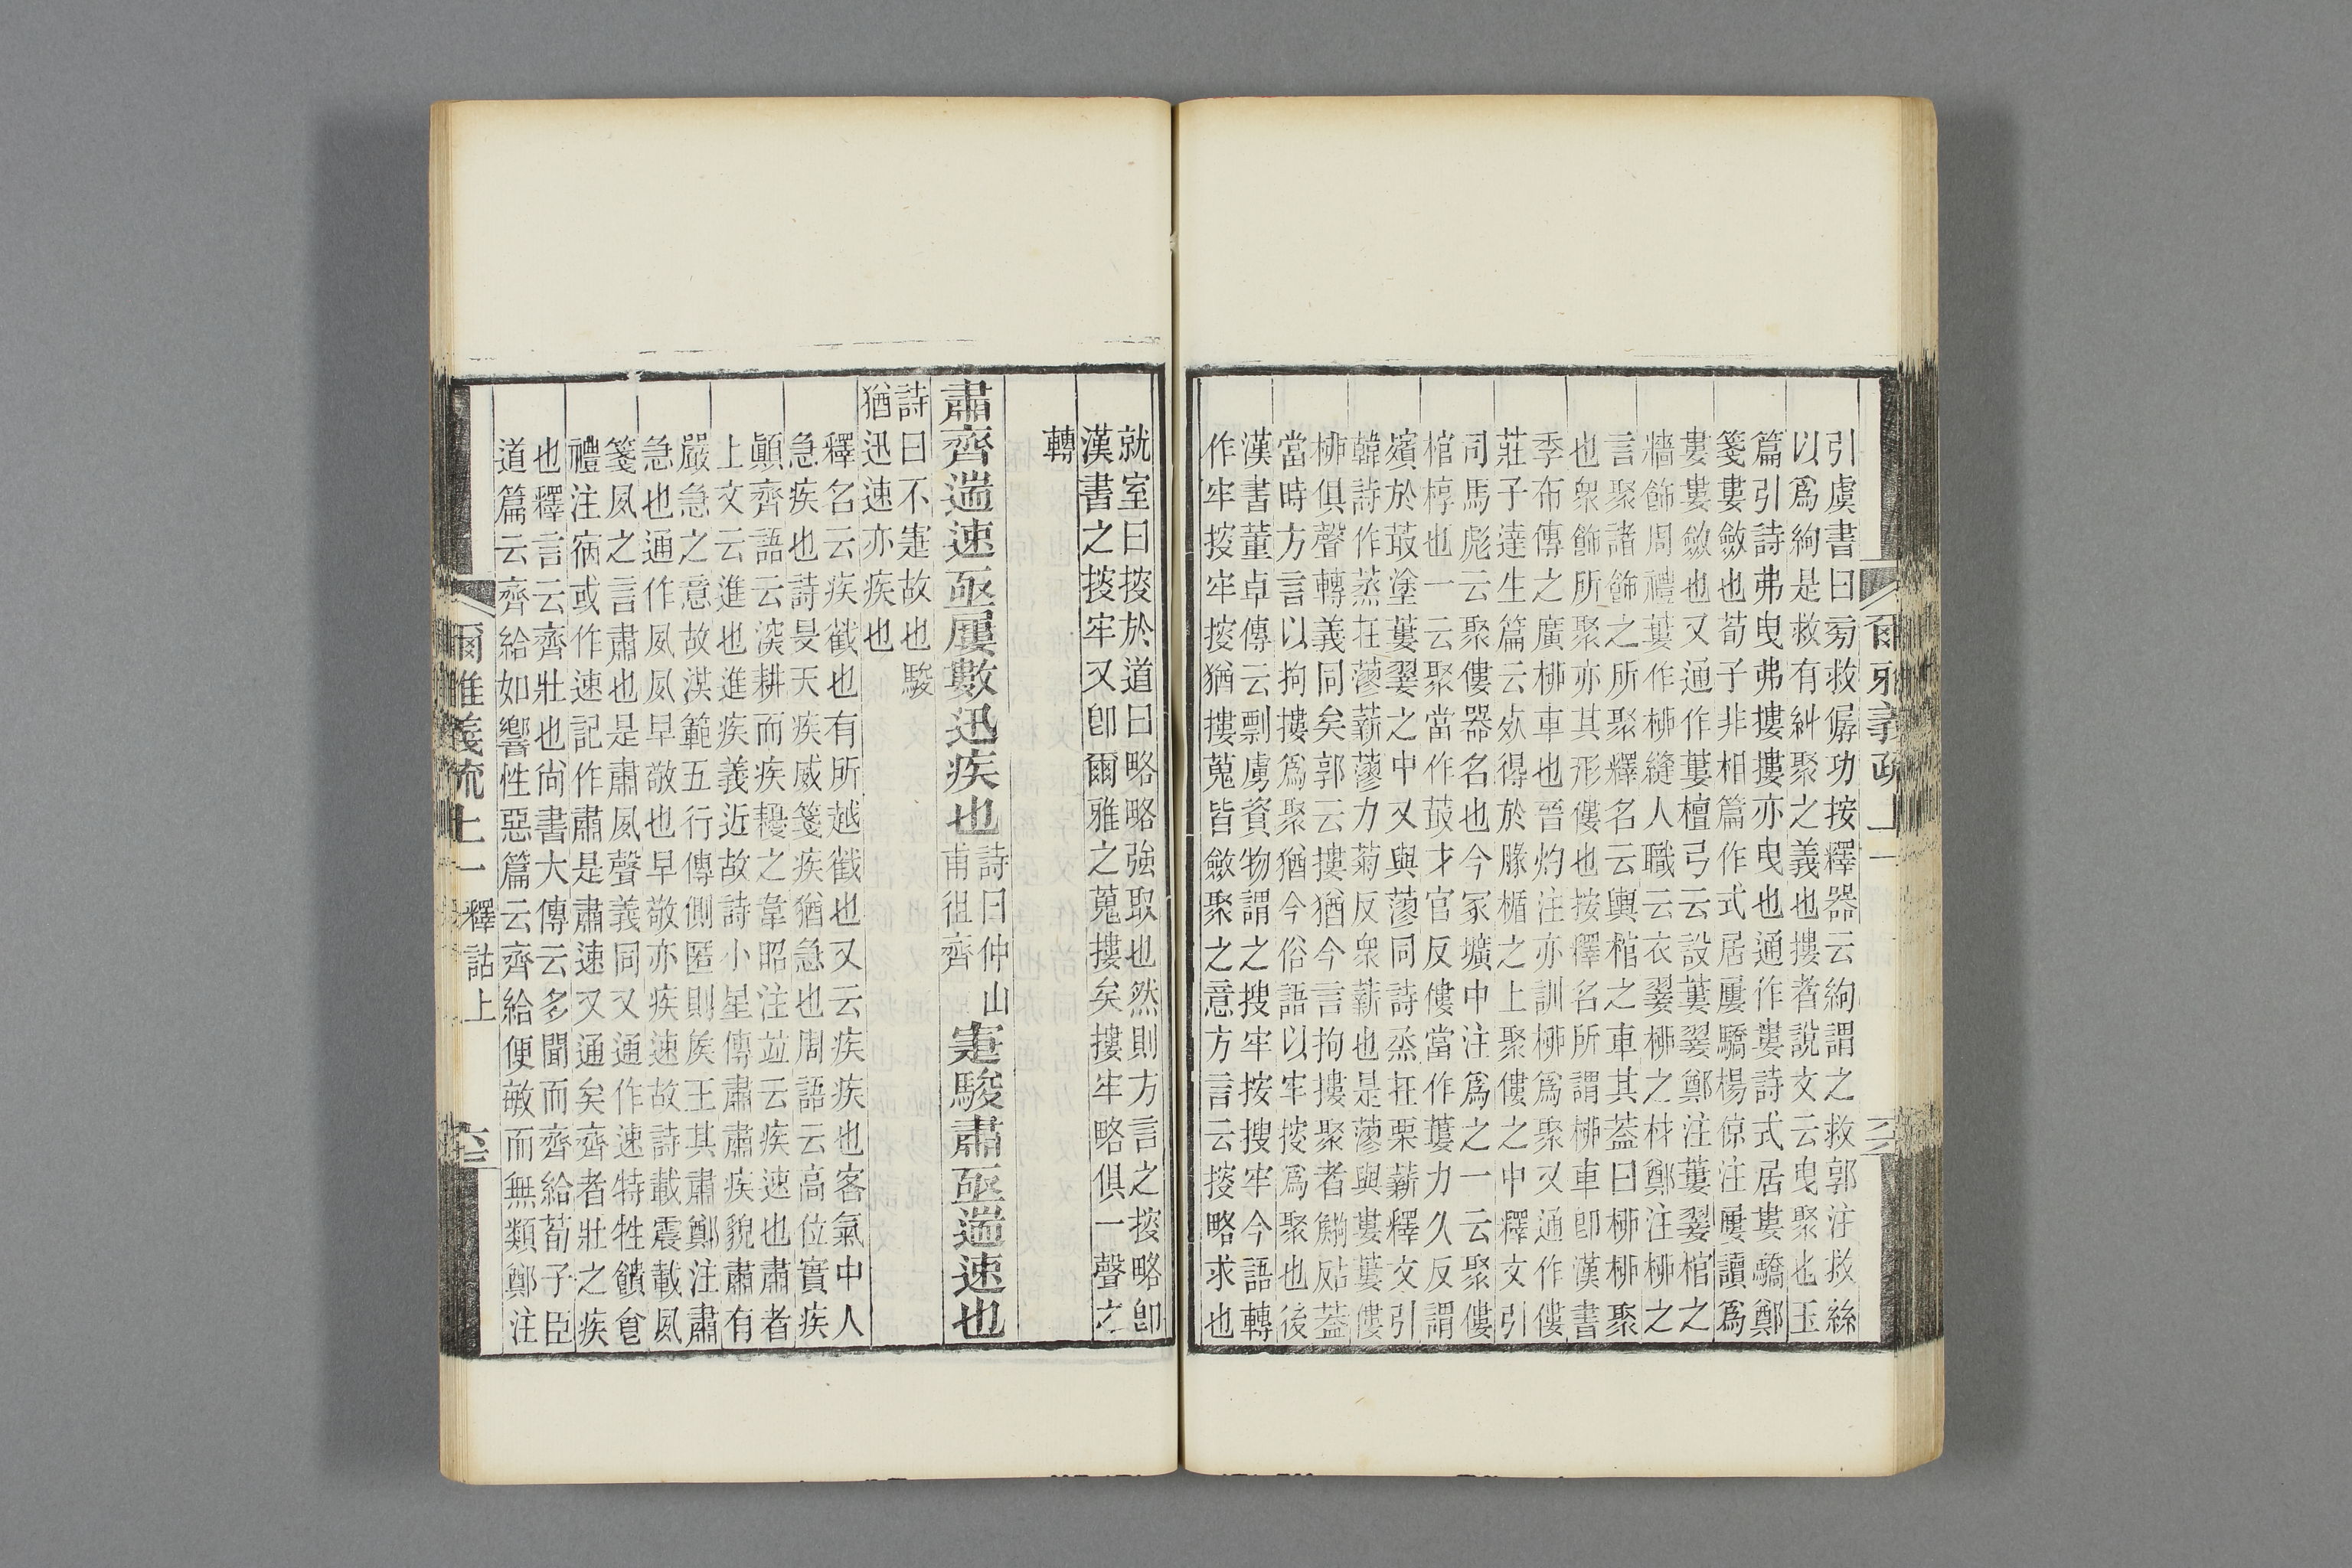 引虞書曰㫄救僝功按釋器云絇謂之救郭注救絲
以爲絇是救有糾聚之義也摟者說文云曳聚也玉
篇引詩弗曳弗摟摟亦曳也通作婁詩式居婁驕鄭
箋婁斂也荀子非相篇作式居屢驕楊倞注屢讀爲
婁婁斂也又通作蔞檀弓云設蔞翣鄭注蔞翣棺之
牆飾周禮蔞作桺縫人職云衣翣桺之材鄭注桺之
言聚諸飾之所聚釋名云輿棺之車其蓋曰桺桺聚
也衆飾所聚亦其形僂也按釋名所謂桺車卽漢書
季布傳之廣桺車也晉灼注亦訓桺爲聚又通作僂
莊子達生篇云㱙得於腞楯之上聚僂之中釋文引
司馬彪云聚僂器名也今冢壙中注爲之一云聚僂
棺椁也一云聚當作菆才官反僂當作蔞力久反謂
殯於菆塗蔞翣之中又與蓼同詩烝在栗薪釋文引
韓詩作蒸在蓼薪蓼力菊反衆薪也是蓼與婁蔞僂
桺俱聲轉義同矣郭云摟猶今言拘摟聚者鶨㕰蓋
當時方言以拘摟爲聚猶今俗語以牢㨮爲聚也後
漢書董卓傳云剽虜資物謂之搜牢按搜牢今語轉
作牢㨮牢㨮猶摟蒐皆斂聚之意方言云㨮略求也
就室曰㨮於道曰略略強取也然則方言之㨮略卽
漢書之㨮牢又卽爾雅之蒐摟矣摟牢略俱一聲之
轉
肅齊遄速亟屢數迅疾也詩曰仲山
甫徂齊寁駿肅亟遄速也
詩曰不寁故也駿
猶迅速亦疾也
釋名云疾截也有所越截也又云疾疾也客氣中人
急疾也詩旻天疾威箋疾猶急也周語云高位實疾
顚齊語云深耕而疾耰之韋昭注竝云疾速也肅者
上文云進也進疾義近故詩小星傳肅肅疾貌肅有
嚴急之意故漢範五行傳側匿則矦王其肅鄭注肅
急也通作夙夙早敬也早敬亦疾速故詩載震載夙
箋夙之言肅也是肅夙聲義同又通作速特牲饋食
禮注宿或作速記作肅是肅速又通矣齊者壯之疾
也釋言云齊壯也尙書大傳云多聞而齊給荀子臣
道篇云齊給如響性惡篇云齊給便敏而無類鄭注
爾雅義疏上一
六
爾雅義疏上一釋詁上